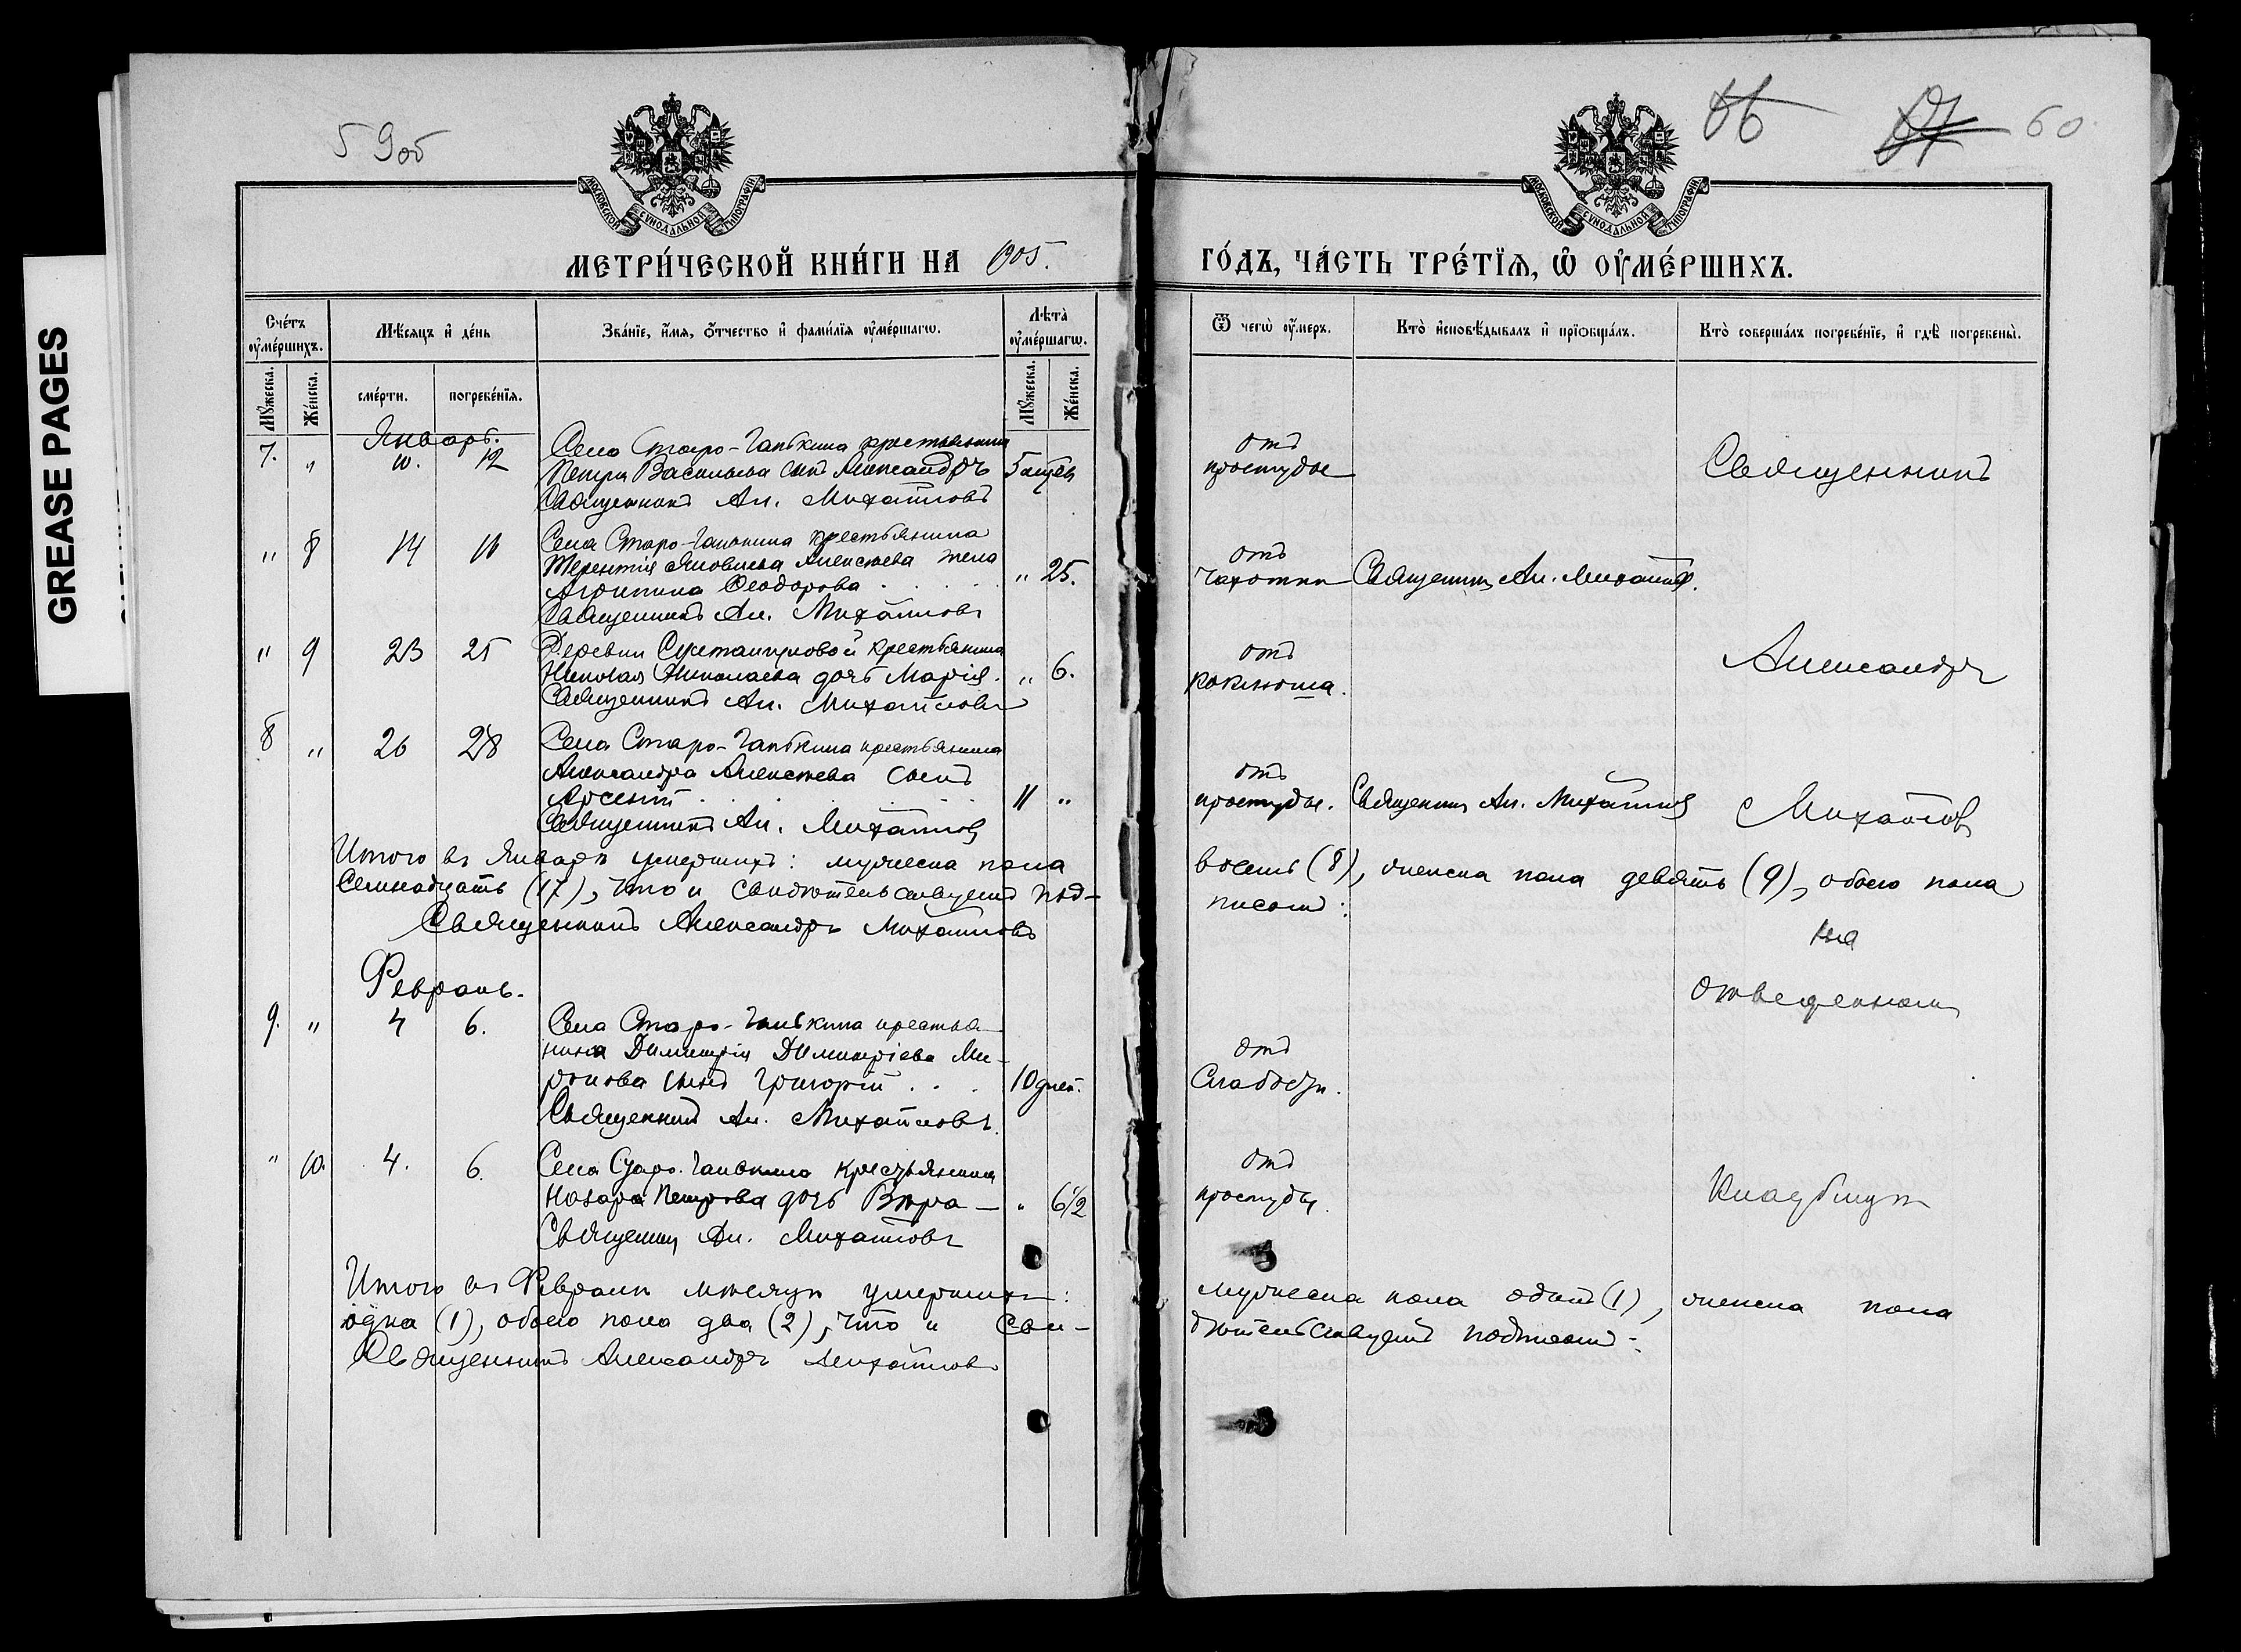 GREASE PAGES
59об
60
МОСКОВСКОЙ СѴНОДАЛЬНОЙ ТИПОГРАФІИ
МОСКОВСКОЙ СѴНОДАЛЬНОЙ ТИПОГРАФІИ
МЕТРИ́ЧЕСКОЙ КНИ́ГИ НА 1905.
ГО́ДЪ, ЧА́СТЬ ТРЕ́ТЇѦ, Ѡ ОУ҆МЕ́РШИХЪ.
Сче́тъ оу҆ме́ршихъ.
Мѣ́сяцъ и҆ де́нь
Зва́нїе, и҆́мѧ, ѻ҆́тчество и҆ фами́лїѧ оу҆ме́ршагѡ.
Лѣ́та оу҆ме́ршагѡ.
Ѿ чегѡ̀ оу҆́меръ.
Кто̀ и҆сповѣ́дывалъ и҆ прїѡбща́лъ.
Кто̀ соверша́лъ погребе́нїе, и҆ гдѣ̀ погребены̀.
Мꙋ́жеска.
Же́нска.
сме́рти.
погребе́нїѧ.
Мꙋ́жеска.
Же́нска.
Январь.
7. " 10. 12 Села Старо-Ганькина крестьянина
Петра Васильева сынъ Александръ
Священникъ Ал. Михайловъ
отъ
простуды
Священникъ
" 8 14 16 Села Старо-Ганькина крестьянина
Терентія Яковлева Алексѣева жена
Агрипина Ѳеодорова " 25.
Священникъ Ал. Михайловъ
отъ
чахотки Священникъ Ал. Михайловъ.
" 9 23 25 Деревни крестьянина
Николая Николаева дочь Марія. " 6.
Священникъ Ал. Михайловъ
отъ
коклюша.
Александръ
8 " 26 28 Села Старо-Ганькина крестьянина
Александра Алексѣева сынъ
Арсеній 11 "
Священникъ Ал. Михайловъ
отъ
простуды. Священникъ Ал. Михайловъ
Михайловъ
Итого въ Январѣ умершихъ: мужеска пола
восемь (8), женска пола девять (9), обоего пола
семнадцать (17), что и свидѣтельствуетъ под-
писомъ:
Священникъ Александръ Михайловъ
на
Февраль.
отведенномъ
9. " 4 6. Села Старо-Ганькина крестья-
нина Димитрія Димитріева Ми-
ронова сынъ Григорій . . . 10 дней.
Священникъ Ал. Михайловъ.
отъ
слабости.
" 10. 4. 6. Села Старо-Ганькина крестьянина
Назара Петрова дочь Вѣра — " 6½
Священникъ Ал. Михайловъ
отъ
простуды.
Кладбищѣ
Итого въ Февралѣ мѣсяцѣ умершихъ:
мужеска пола одинъ (1), женска пола
одна (1), обоего пола два (2), что и сви-
дѣтельствуетъ подписомъ:
Священникъ Александръ Михайловъ